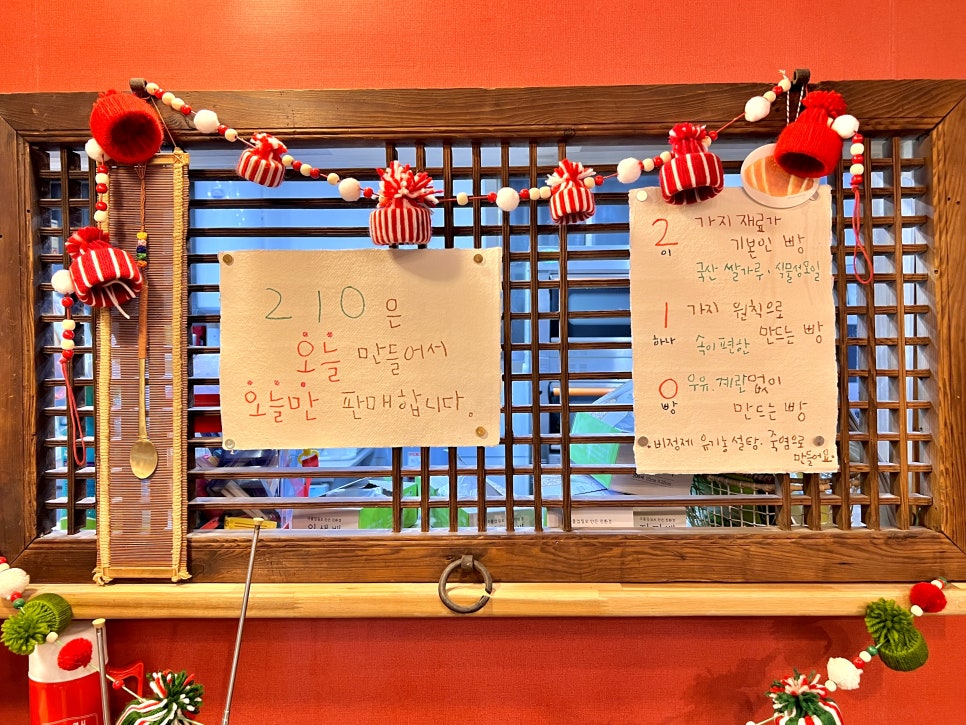 210은
오늘 만들어서
오늘만 판매합니다.
2 가지 재료가
이 기본인 빵
국산 쌀가루, 식물성오일
1 가지 원칙으로
하나 속이 편한 만드는 빵
0 우유, 계란없이
빵 만드는 빵
비정제 유기농 설탕, 죽염으로
만들어요.